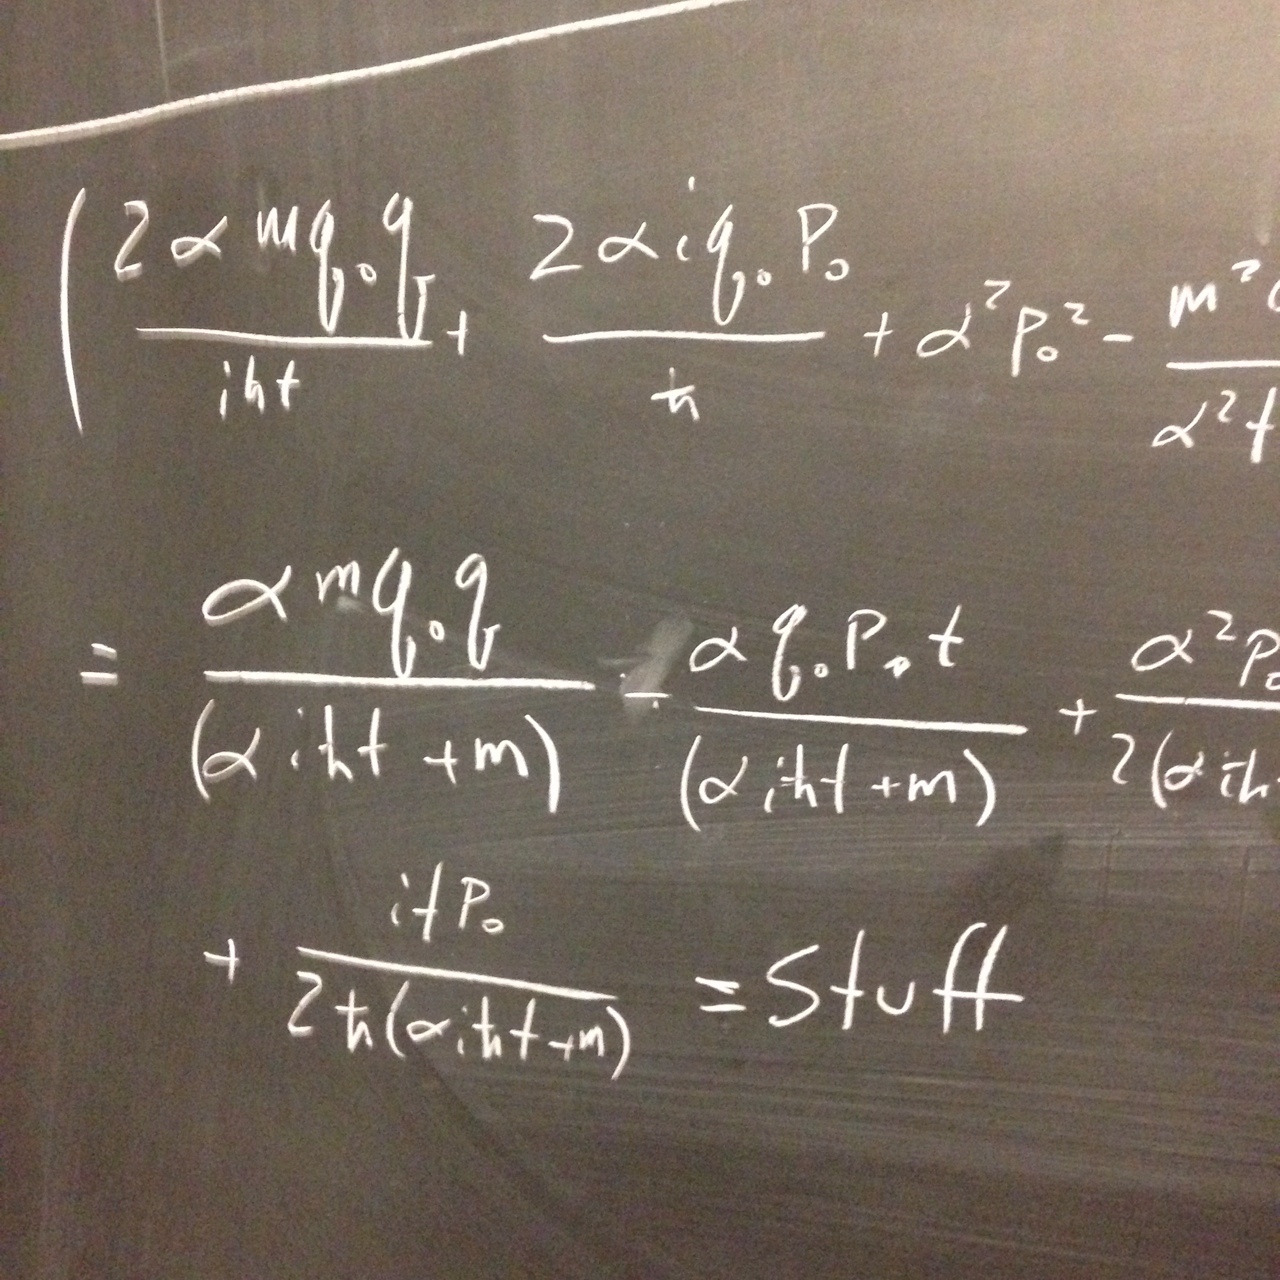 ( 2αmq₀q / iħt + 2αiq₀P₀ / ħ + α²P₀² - m² / α²t
= αmq₀q / (αiħt + m) - αq₀P₀t / (αiħt + m) + α²P₀ / 2(αiħ
+ itP₀ / 2ħ(αiħt + m) = Stuff